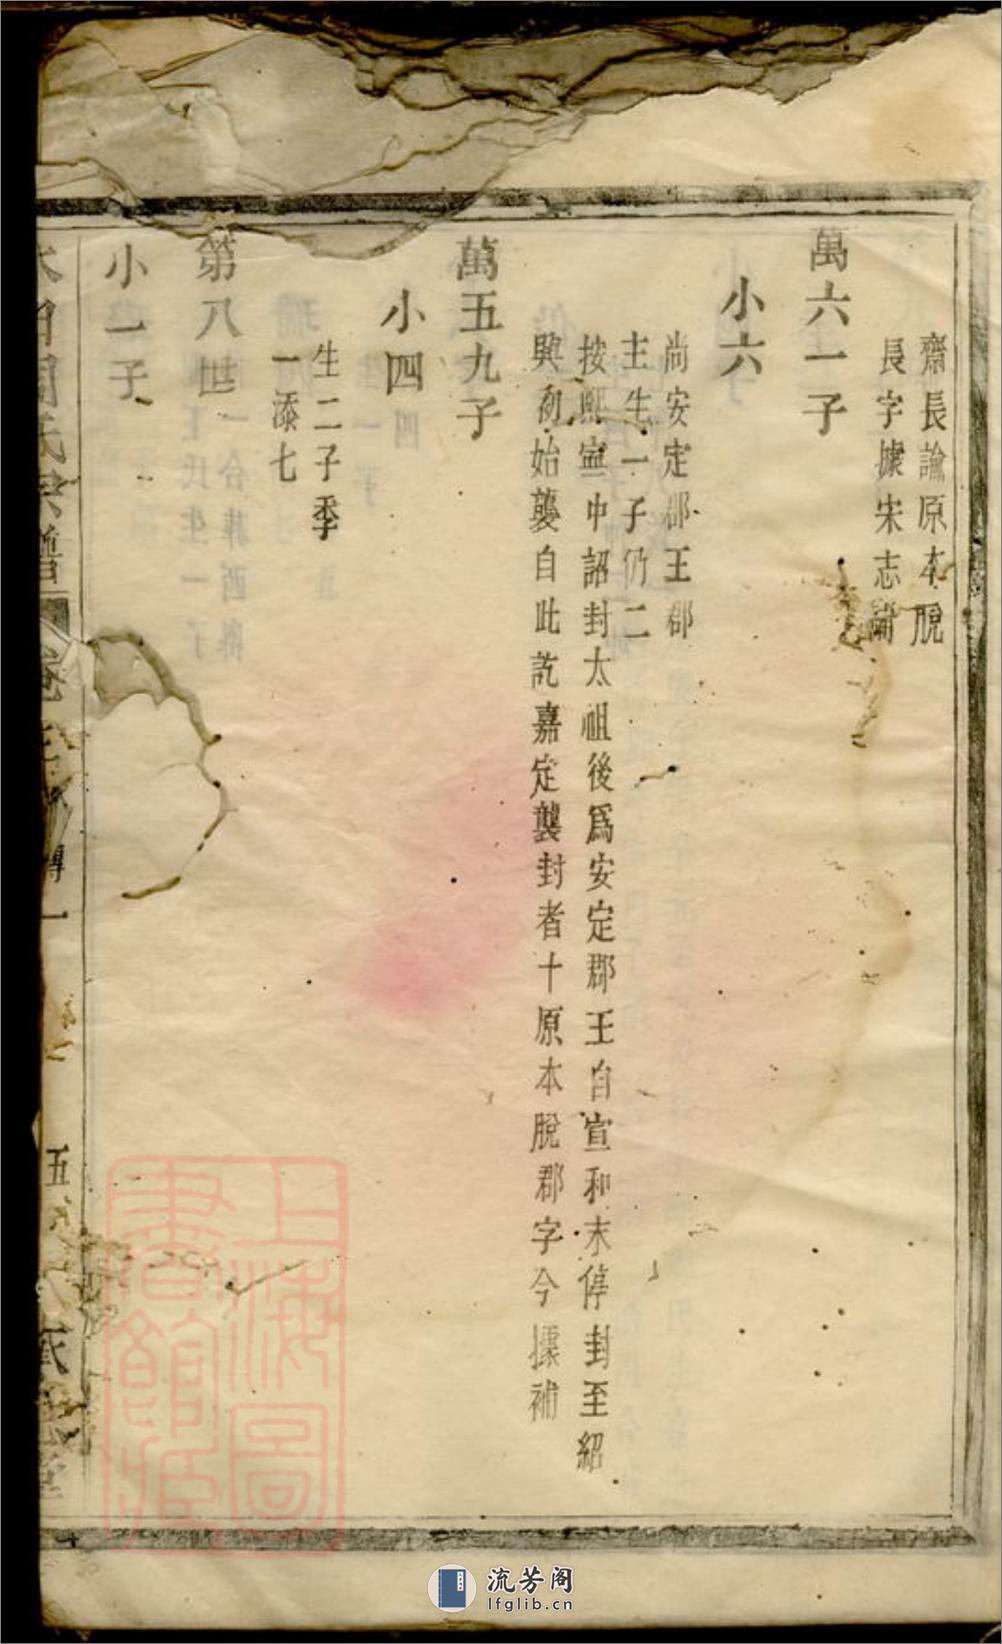 齋長諭原本脫
長字據宋志補
萬六一子
小六
尚安定郡王郡
主生一子仍二
按熙寧中詔封太祖後爲安定郡王自宣和末停封至紹
興初始襲自此訖嘉定襲封者十原本脫郡字今據補
萬五九子
小四
生二子季
一添七
第八世
小一子
周氏宗譜 卷 傳一 五
上海圖書館藏
流芳阁
lfglib.cn